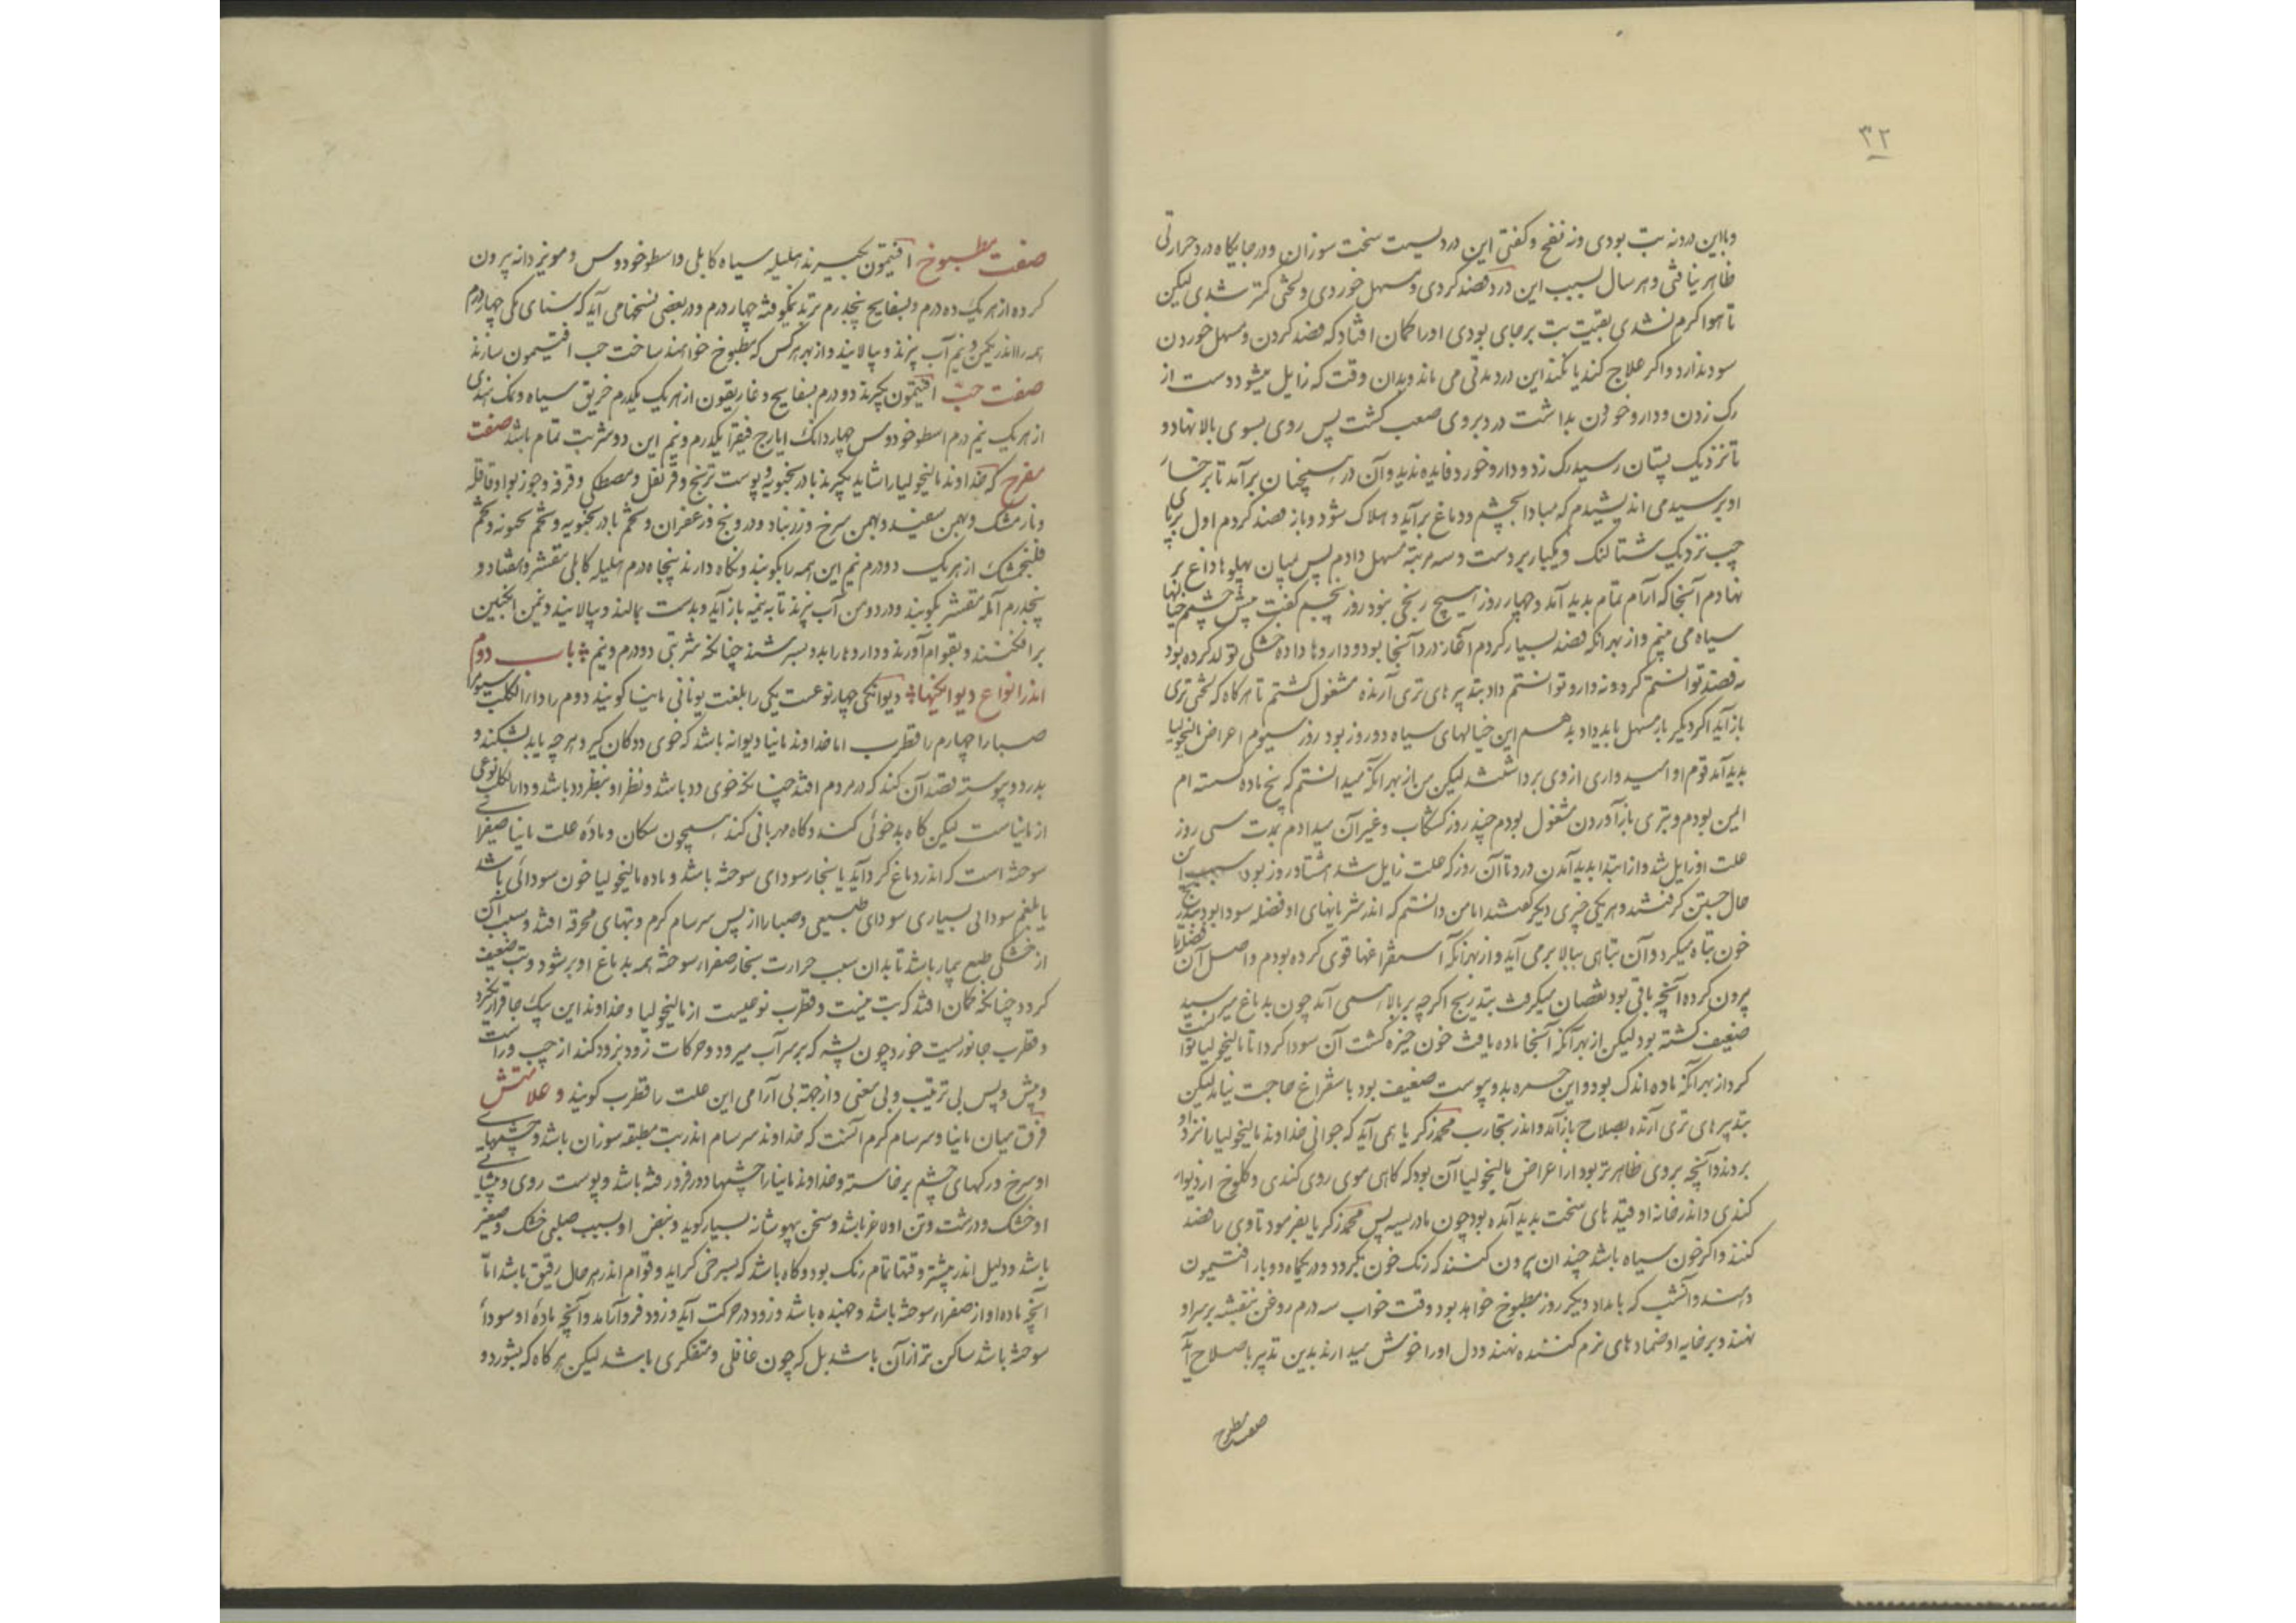 ۳۲
وبااین درد نه تب بودی ونه نفخ وکفتی این دردیست سخت سوزان ودر جایکاه درد حرارتی
ظاهر نیافتی وهر سال بسبب این درد فصد کردی ومسهل خوردی ولختی کمتر شدی لیکن
تا هوا کرم نشدی بقیت تب برجای بودی اورا کمان افتاد که فصد کردن ومسهل خوردن
سود ندارد واکر علاج کند یا نکند این درد مدتی می ماند وبدان وقت که زایل میشود دست از
رک زدن ودارو خوردن بداشت درد بروی صعب کشت پس روی بسوی بالا نهاد و
تا نزدیک پستان رسید رک زد ودارو خورد فایده ندید وآن درد همچنان برآمد تا بر
او برسید می اندیشیدم که مبادا بچشم ودماغ برآید وهلاک شود وباز فصد کردم اول بر پای
چپ نزدیک شتالنک ویکبار بر دست وسه مرتبه مسهل دادم پس میان پهلوها داغ بر
نهادم آنجا که آرام تمام پدید آمد وچهار روز هیچ رنجی نبود روز پنجم کفت پیش چشم خیالها
سیاه می بینم واز بهر انکه فصد بسیار کردم آغاز درد آنجا بود وداروها داده خشکی تولد کرده بود
نه فصد توانستم کرد ونه دارو توانستم داد بتدبیرهای تری آرنده مشغول کشتم تا هرکاه که لختی تری
باز آید اکر دیکر بار مسهل باید داد بدهم این خیالهای سیاه دو روز بود روز سیوم اعراض مالیخولیا
پدید آمد قوم او امیدواری از وی برداشتند لیکن من از بهر انکه میدانستم که بیخ ماده کسسته ام
ایمن بودم وبتری باز آوردن مشغول بودم چند روز کشکاب وغیر آن میدادم بمدت سی روز
علت او زایل شد واز ابتدا پدید آمدن درد تا آن روز که علت زایل شد هشتاد روز بود سبب
حال جستن کرفتند وهر یکی چیزی دیکر کفتند اما من دانستم که اندر شریانهای او فضله سودا بود
خون تباه میکرد وآن تباهی ببالا برمی آید واز بهر آنکه استفراغها قوی کرده بودم واصل آن
بیرون کرده آنچه باقی بود نقصان میکرفت بتدریج اکرچه بر بالا همی آمد چون بدماغ میرسید
ضعیف کشته بود لیکن از بهر آنکه آنجا ماده یافت خون خیره کشت آن سودا کرد تا مالیخولیا
کرد از بهر انکه ماده اندک بود واین بدو پیوست ضعیف بود باستفراغ حاجت نیامد لیکن
بتدبیرهای تری آرنده بصلاح باز آمد واندر تجارب محمد زکریا همی آید که جوانی خداوند مالیخولیا را نزد او
بردند وآنچه بروی ظاهرتر بود از اعراض مالیخولیا آن بود که کاهی موی روی کندی وکلوخ از دیوار
کندی واندر خانه او فتیله های سخت پدید آمده بود چون پس محمد زکریا بفرمود تا وی را فصد
کنند واکر خون سیاه باشد چندان بیرون کنند که رنک خون بکردد ودر یکماه دو بار افتیمون
دهند وآنشب که بامداد دیکر روز مطبوخ خواهد بود وقت خواب سه درم روغن بنفشه بر سر او
نهند وبر خایه او ضمادهای نرم کننده نهند ودل اورا خوش میدارند بدین تدبیر باصلاح آید
صفت مطبوخ
صفت مطبوخ افتیمون بکیرند هلیله سیاه کابلی واسطوخودوس ومویز دانه بیرون
کرده از هر یک ده درم وبسفایج پنجدرم تربد نیکوفته چهار درم ودر بعضی نسختها می آید که سنای مکی چهار درم
همه را اندر یکمن ونیم آب بپزند وبپالایند واز بهر هرکس که مطبوخ خواهند ساخت حب افتیمون سازند
صفت حب افتیمون بکیرند دو درم بسفایج وغاریقون از هر یک یکدرم خربق سیاه ونمک هندی
از هر یک نیم درم اسطوخودوس چهار دانک ایارج فیقرا یکدرم ونیم این دو شربت تمام باشد صفت
مفرح که خداوند مالیخولیا را شاید بکیرند بادرنجبویه وپوست ترنج وقرنفل ومصطکی وقرفه وجوزبوا وقاقله
ونارمشک وبهمن سفید وبهمن سرخ وزرنباد ودرونج وزعفران وتخم بادرنجبویه وتخم وتخم
فلنجمشک از هر یک دو درم نیم این همه را بکوبند ونکاه دارند پنجاه درم هلیله کابلی مقشر وهفتاد و
پنجدرم آمله مقشر بکوبند ودر دو من آب بپزند تا بنیمه باز آید وبدست بمالند وبپالایند ونیمن انکبین
برافکنند وبقوام آورند وداروها را بدو بسرشند چنانکه شربتی دو درم ونیم باب دوم
اندر انواع دیوانکیها دیوانکی چهار نوعست یکی را بلغت یونانی مانیا کویند دوم را داء الکلب سیوم را
صبارا چهارم را قطرب اما خداوند مانیا دیوانه باشد که خوی ددکان کیرد هرچه یابد بشکند و
بدرد وپیوسته قصد آن کند که در مردم افتد چنانکه خوی دد باشد ونظر او بنظر دد باشد وداء الکلب نوعی
از مانیاست لیکن کاه بدخوئی کند وکاه مهربانی کند همچون سکان وماده علت مانیا صفرای
سوخته است که اندر دماغ کرد آید یا بخار سودای سوخته باشد وماده مالیخولیا خون سودائی باشد
یا بلغم سودائی بسیاری سودای طبیعی وصبارا از پس سرسام کرم وتبهای محرقه افتد وسبب آن
از خشکی طبع بیمار باشد تا بدان سبب حرارت بخار صفراء سوخته همه بدماغ او برشود وتب ضعیف
کردد چنانکه کمان افتد که تب نیست وقطرب نوعیست از مالیخولیا وخداوند این بیک جا قرار نکیرد
وقطرب جانوریست خورد چون پشه که بر سر آب میرود وحرکات زود بزود کند از چپ وراست
وپیش وپس بی ترتیب وبی معنی واز جهة بی آرامی این علت را قطرب کویند وعلامتش
فرق میان مانیا وسرسام کرم آنست که خداوند سرسام اندر تب مطبقه سوزان باشد وچشمهای
او سرخ ورکهای چشم برخاسته وخداوند مانیا را چشمها دور فرو رفته باشد وپوست روی وپیشانی
او خشک ودرشت وتن او لاغر باشد وسخن بیهوشانه بسیار کوید ونبض او بسبب صلبی خشک وصغیر
باشد ودلیل اندر بیشتر وقتها تمام رنک بود وکاه باشد که بسرخی کراید وقوام اندر هر حال رقیق باشد اما
آنچه ماده او از صفراء سوخته باشد وجهنده باشد وزود در حرکت آید وزود فرو آرامد وآنچه ماده او سوداء
سوخته باشد ساکن تر از آن باشد بل که چون غافلی ومتفکری باشد لیکن هرکاه که بشورد و